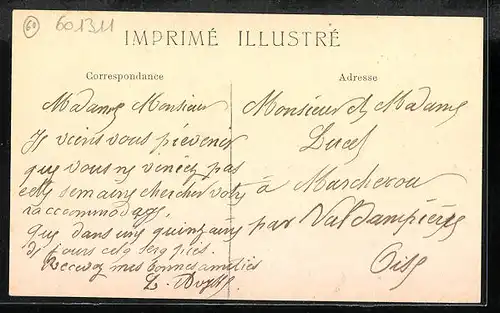 60
601311
IMPRIMÉ ILLUSTRÉ
Correspondance
Adresse
Madame Monsieur
Je viens vous prévenir
que vous ne veniez pas
cette semaine chercher votre
raccommodage,
que dans une quinzaine
de jours cela sera prêt.
Recevez mes bonnes amitiés
Monsieur & Madame
Lucet
à Marcherou
par Valdampierre
Oise